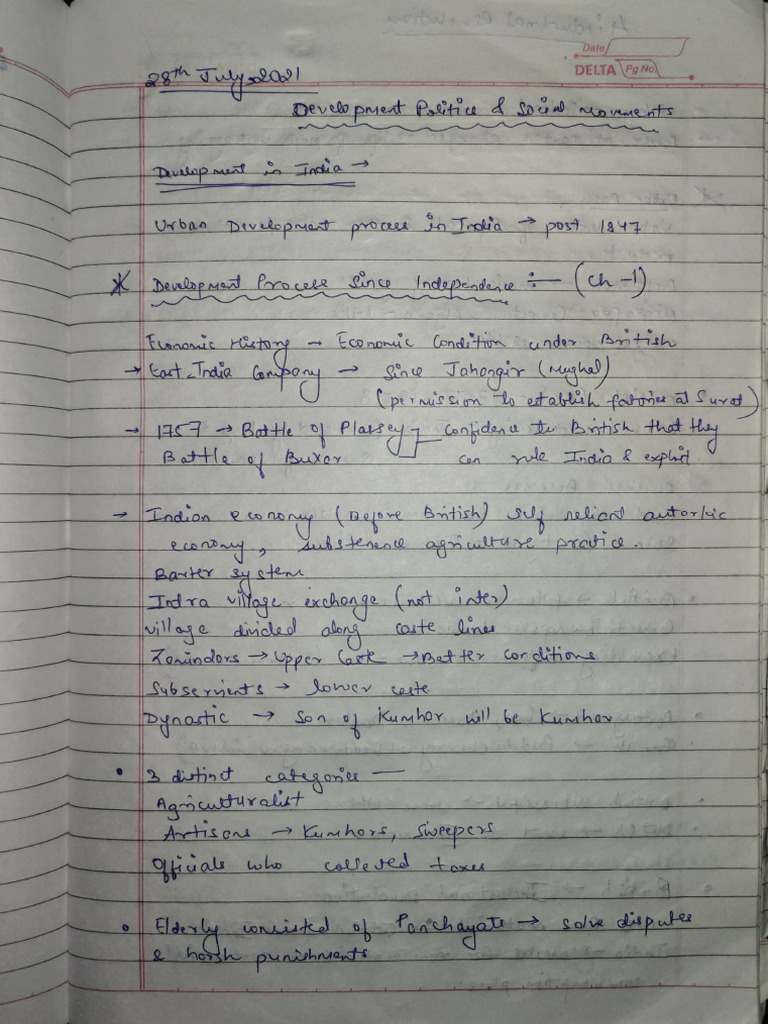 Date
DELTA Pg No.
28th July, 2021
Development Politics & Social Movements
Development in India →
Urban Development process in India → post 1947
* Development Process Since Independence :- (Ch-1)
Economic History → Economic Condition under British
→ East India Company → Since Jahangir (Mughal)
(permission to establish factories at Surat)
→ 1757 → Battle of Plassey confidence to British that they
Battle of Buxar can rule India & exploit.
→ Indian economy (Before British) self reliant autarkic
economy, subsistence agriculture practice.
Barter system
Intra village exchange (not inter)
village divided along caste lines
Zamindars → Upper Caste → Better conditions
Subservients → lower caste
Dynastic → Son of Kumhar will be Kumhar
• 3 distinct categories —
Agriculturalist
Artisans → Kumhars, Sweepers
Officials who collected taxes
• Elderly consisted of Panchayats → solve disputes
& harsh punishments